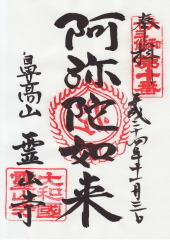 奉拝
平成二十四年十一月三日
阿弥陀如来
鼻高山
霊山寺
大和國
霊山寺